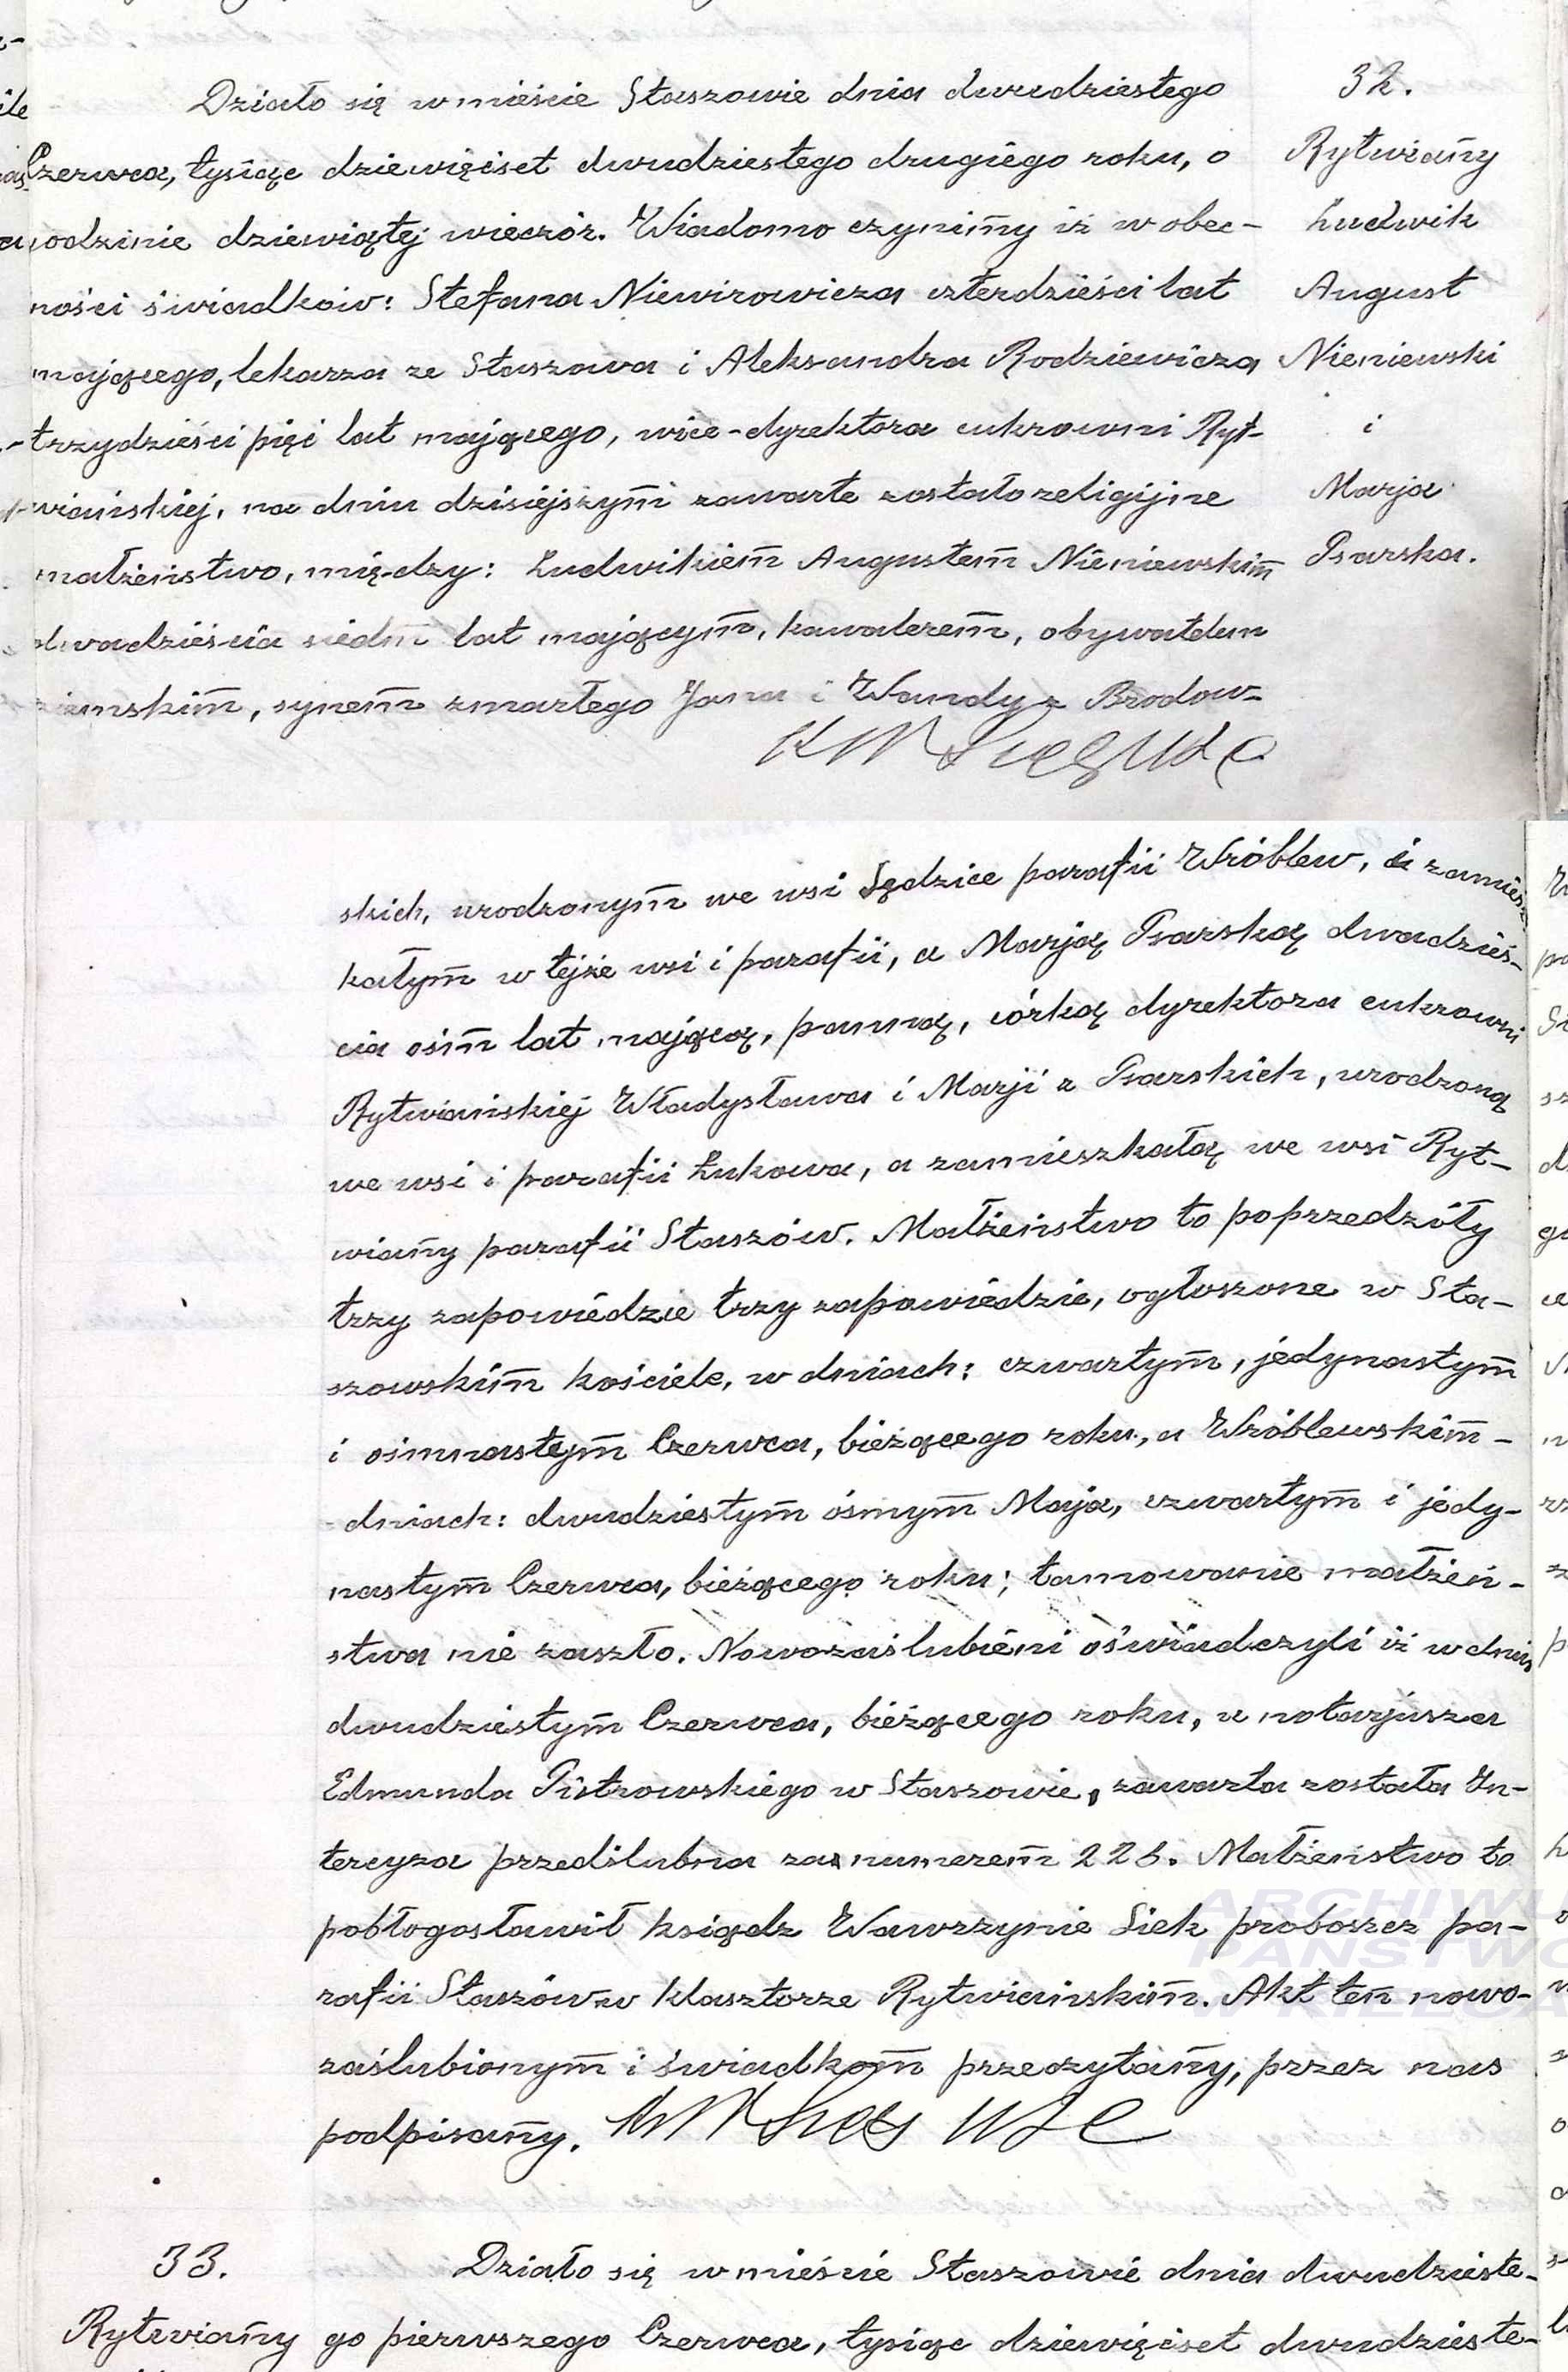 Działo się w mieście Staszowie dnia dwudziestego
Czerwca, tysiąc dziewięćset dwudziestego drugiego roku, o
godzinie dziewiątej wieczór. Wiadomo czynimy iż w obec-
ności świadków: Stefana Niewirowicza czterdzieści lat
mającego, lekarza ze Staszowa i Aleksandra Rodziewicza
trzydzieści pięć lat mającego, wice-dyrektora cukrowni Ryt-
wiańskiej, na dniu dzisiejszym zawarte zostało religijne
małżeństwo, między: Ludwikiem Augustem Nieniewskim
dwadzieścia siedm lat mającym, kawalerem, obywatelem
ziemskim, synem zmarłego Jana i Wandy z Brodow-
32.
Rytwiany
Ludwik
August
Nieniewski
i
Marja
Psarska.
skich, urodzonym we wsi Sędzice parafii Wróblew, i zamiesz
kałym w tejże wsi i parafii, a Marją Psarską dwadzieś-
cia ośm lat mającą, panną, córką dyrektora cukrowni
Rytwiańskiej Władysława i Marji z Psarskich, urodzoną
we wsi i parafii Łukowa, a zamieszkałą we wsi Ryt-
wiany parafii Staszów. Małżeństwo to poprzedziły
trzy zapowiedzie trzy zapowiedzie, ogłoszone w Sta-
szowskim kościele, w dniach: czwartym, jedynastym
i ośmnastym Czerwca, bieżącego roku, a Wróblewskim -
dniach: dwudziestym ósmym Maja, czwartym i jedy-
nastym Czerwca, bieżącego roku; tamowanie małżeń-
stwa nie zaszło. Nowozaślubieni oświadczyli iż w dniu
dwudziestym Czerwca, bieżącego roku, u notarjusza
Edmunda Piotrowskiego w Staszowie, zawarta została In-
tercyza przedślubna za numerem 226. Małżeństwo to
pobłogosławił ksiądz Wawrzyniec Siek proboszcz pa-
rafii Staszów w klasztorze Rytwiańskim. Akt ten nowo-
zaślubionym i świadkom przeczytany, przez nas
podpisany.
33.
Rytwiany
Działo się w mieście Staszowie dnia dwudzieste-
go pierwszego Czerwca, tysiąc dziewięćset dwudzieste-